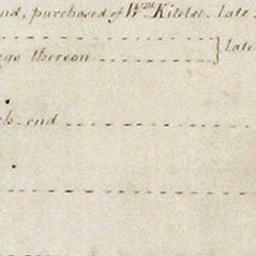 and, purchased of Wm. Kitelee. late
thereon } late
end